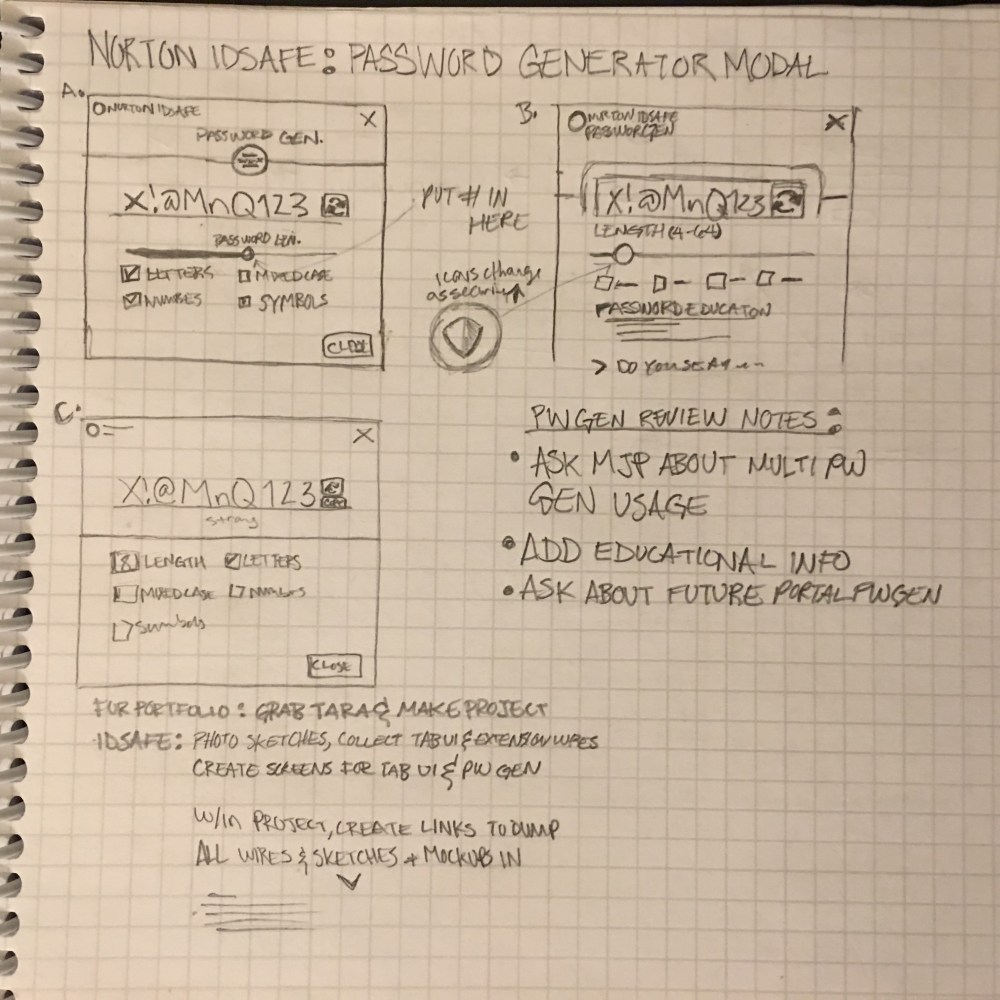 NORTON IDSAFE: PASSWORD GENERATOR MODAL
A.
NORTON IDSAFE
X
PASSWORD GEN.
X!@MnQ123
PASSWORD LEN.
LETTERS
MIXEDCASE
NUMBES
SYMBOLS
CLOSE
PUT # IN
HERE
ICONS CHANGE
AS SECURITY
B.
NORTON IDSAFE
PASSWORDGEN
X
X!@MnQ123
LENGTH (4-64)
PASSWORD EDUCATON
> DO YOU SE A
C.
X
X!@MnQ123
strong
8 LENGTH
LETTERS
MIXEDCASE
NUMBES
SYMBOLS
CLOSE
PWGEN REVIEW NOTES:
• ASK MJP ABOUT MULTI PW
GEN USAGE
• ADD EDUCATIONAL INFO
• ASK ABOUT FUTURE PORTAL PWGEN
FOR PORTFOLIO: GRAB TARA & MAKE PROJECT
IDSAFE: PHOTO SKETCHES, COLLECT TAB UI & EXTENSION WIRES
CREATE SCREENS FOR TAB UI & PW GEN
W/IN PROJECT, CREATE LINKS TO DUMP
ALL WIRES & SKETCHES + MOCKUPS IN